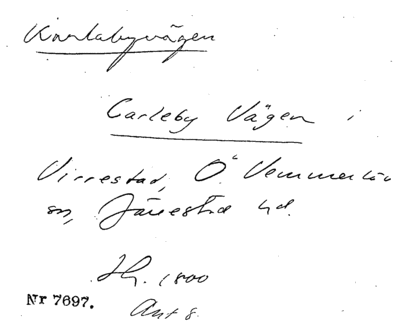 Karlabyvägen
Carleby Vägen i
Virrestad, Ö. Vemmerlöv
sn, Järrestad hd.
Hg. 1800
Nr 7697.
Ant 8